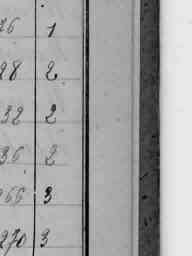 76 1
28 2
32 2
36 2
266 3
270 3